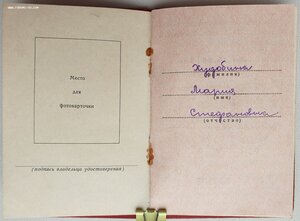 Место
для
фотокарточки
(подпись владельца удостоверения)
Худобина
(фамилия)
Мария
(имя)
Стефановна
(отчество)